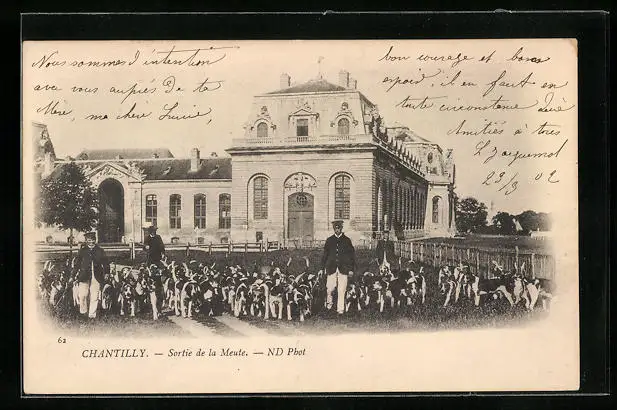 Nous sommes d'intention
avec vous aupiès de ta
Mère, ma chère Lucie,
bon courage et bon
espoir, il en faut en
toute circonstance
Amitiés à tous
L Jacquemot
22/3 02
62 CHANTILLY. — Sortie de la Meute. — ND Phot